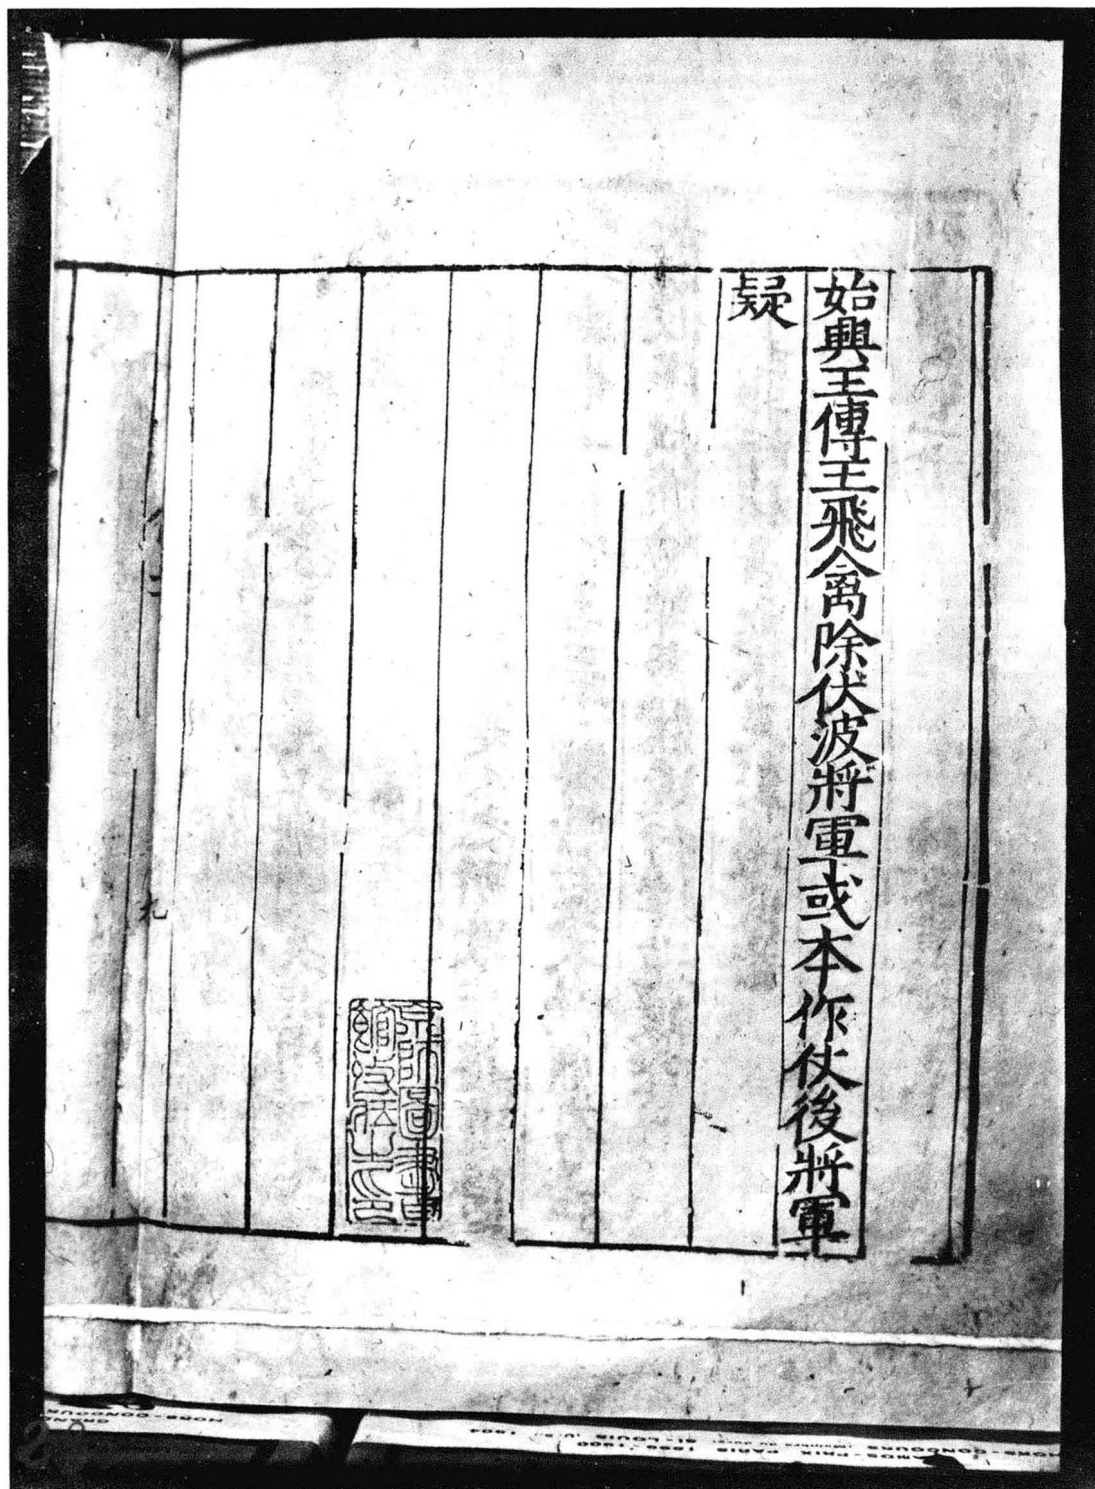 始興王傳王飛禽除伏波將軍或本作仗後將軍
疑
九
京師圖書
館收藏之印